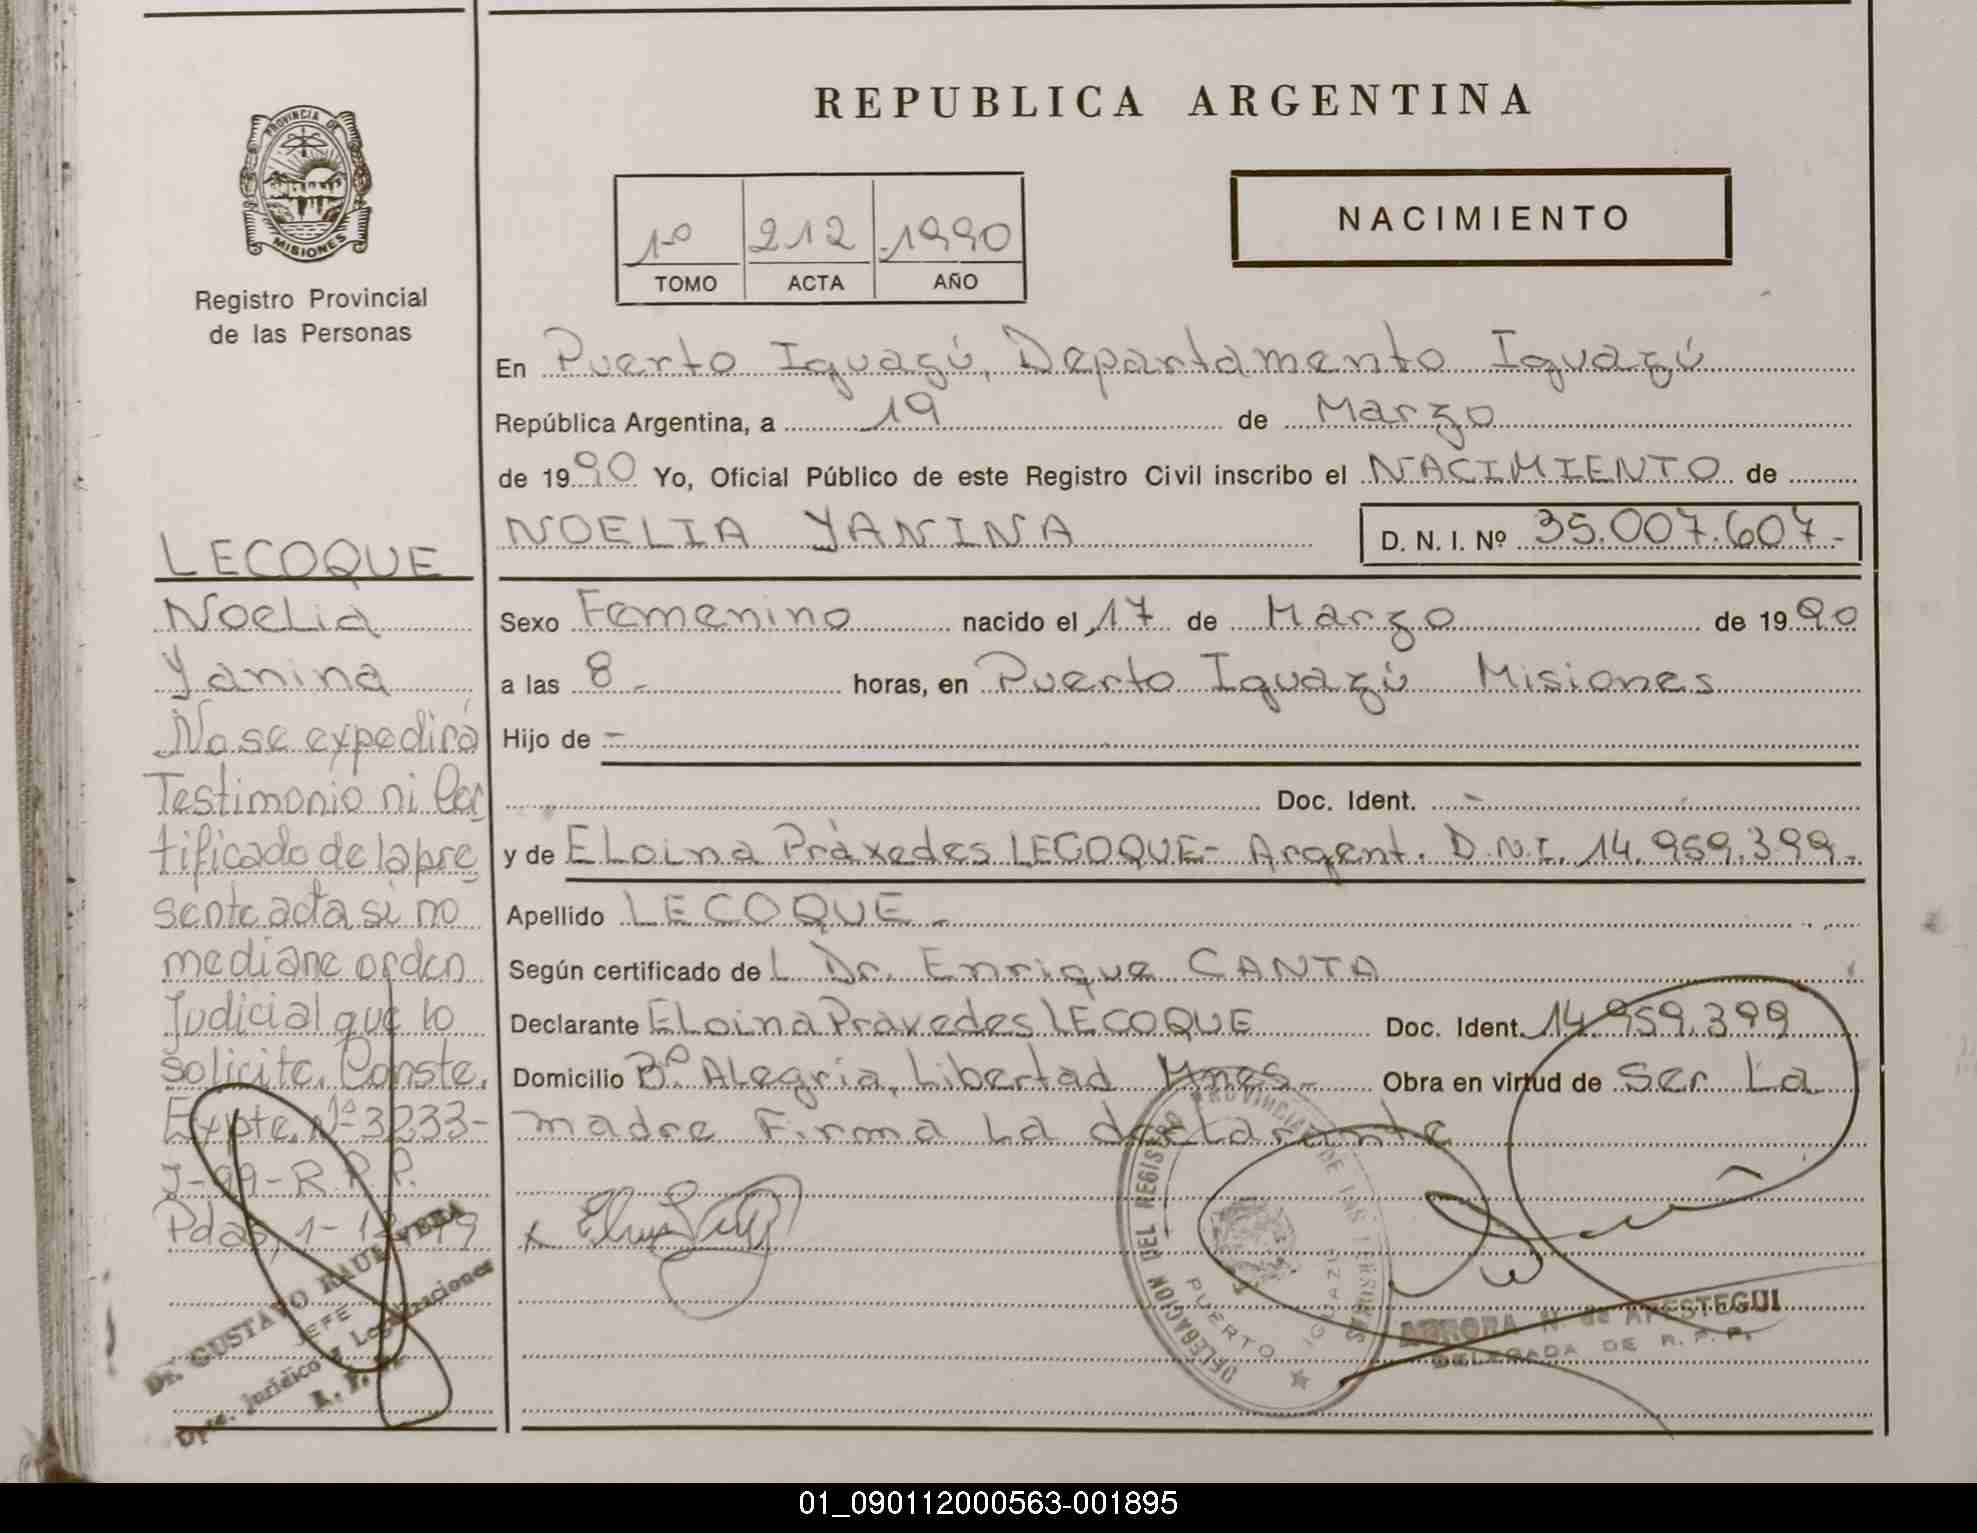 REPUBLICA ARGENTINA
PROVINCIA DE
MISIONES
Registro Provincial
de las Personas
1º 212 1990
TOMO ACTA AÑO
NACIMIENTO
En Puerto Iguazú, Departamento Iguazú
República Argentina, a 19 de Marzo
de 1990 Yo, Oficial Público de este Registro Civil inscribo el NACIMIENTO de
NOELIA YANINA D. N. I. Nº 35.007.607.-
Sexo Femenino nacido el 17 de Marzo de 1990
a las 8 - horas, en Puerto Iguazú Misiones
Hijo de -
Doc. Ident. -
y de ELoina Práxedes LECOQUE- Argent. D.N.I. 14.959.399.-
Apellido LECOQUE.-
Según certificado de L Dr. Enrique CANTA
Declarante ELoina Pravedes LECOQUE Doc. Ident. 14.959.399
Domicilio Bº. ALegria, Libertad Mnes.- Obra en virtud de Ser La
madre Firma La declarante
LECOQUE
Noelia
Yanina
No se expedirá
Testimonio ni Cer
tificado de la pre
sente acta si no
mediane orden
Judicial que lo
solicite. Conste.
Expte. Nº 3233-
J-99-R.P.P.
Pdas, 1- 12-99
Dr. GUSTAVO RAUL VERA
JEFE
Dpto. Jurídico y Legalizaciones
R. P. P.
DELEGACION DEL REGISTRO PROVINCIAL DE LAS PERSONAS
PUERTO IGUAZU
AURORA N. de APESTEGUI
DELEGADA DE R. P. P.
01_090112000563-001895